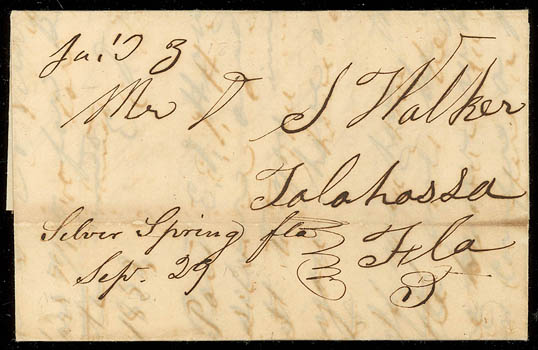 Pai'd 3
Mr D S Walker
Talahassa
Fla
Silver Spring fla
Sep. 29